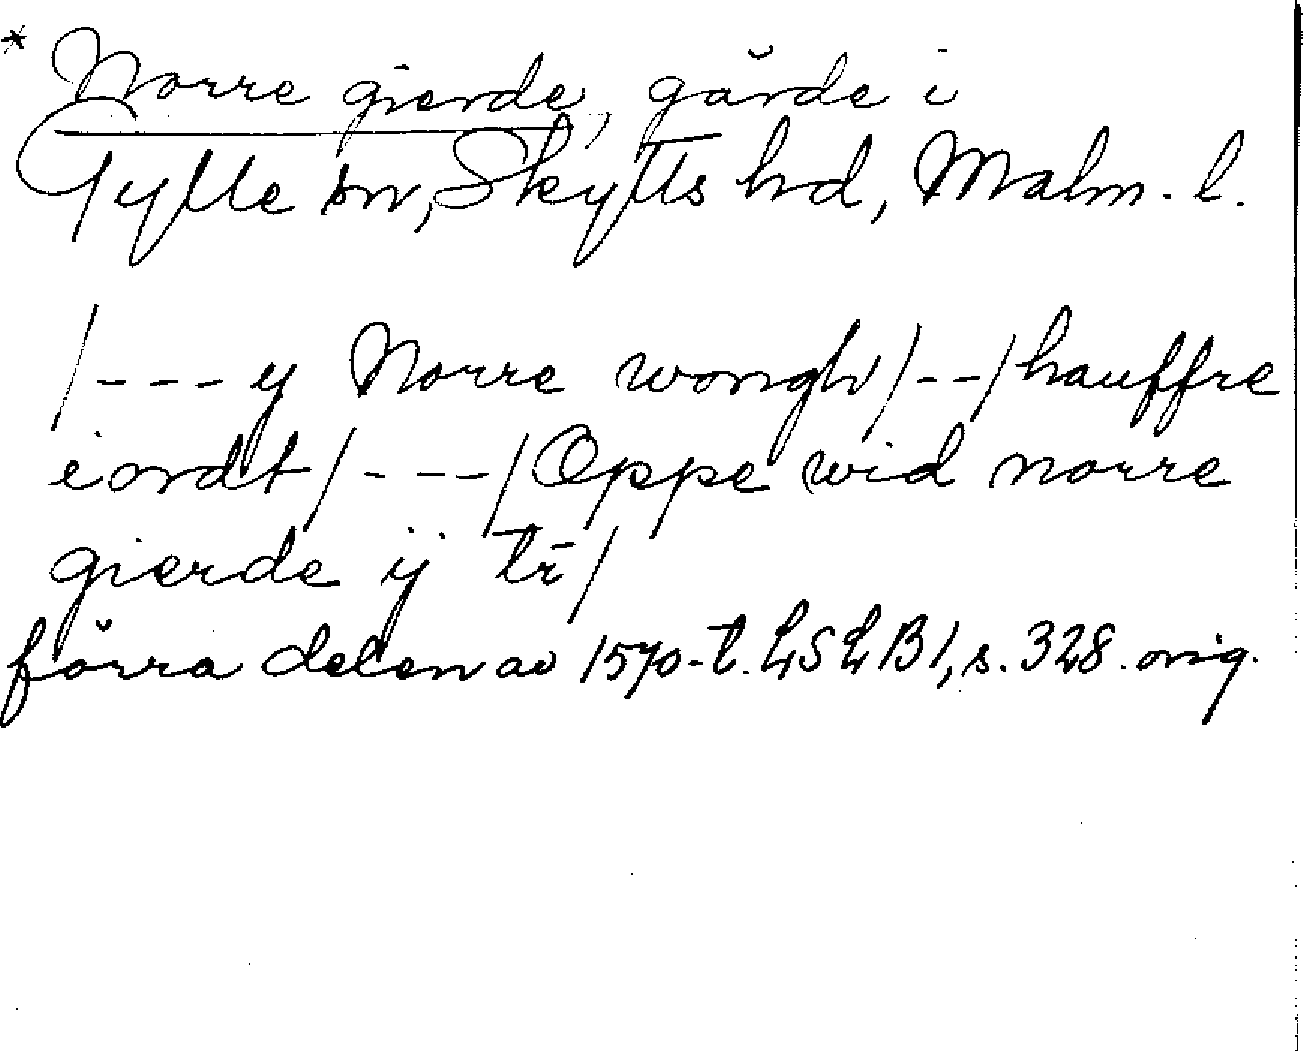 * Norre gierde, gärde i
Gylle sn, Skytts hd, Malm. l.
/---y Norre wongh/--/hauffre
iordt/---/Oppe wid norre
gierde ij tr̄/
förra delen av 1570-t. LSLB1, s. 328. orig.